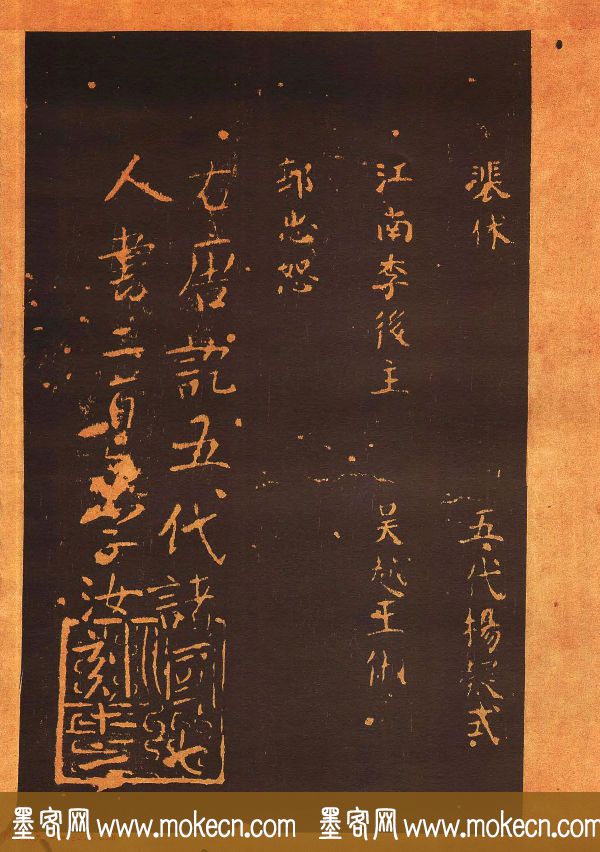 裴休　五代楊凝式
江南李後主　吴越王俶
郭忠恕
右唐訖五代諸國七
人書汝刻十二
墨客网 www.mokecn.com 墨客网 www.mokecn.com